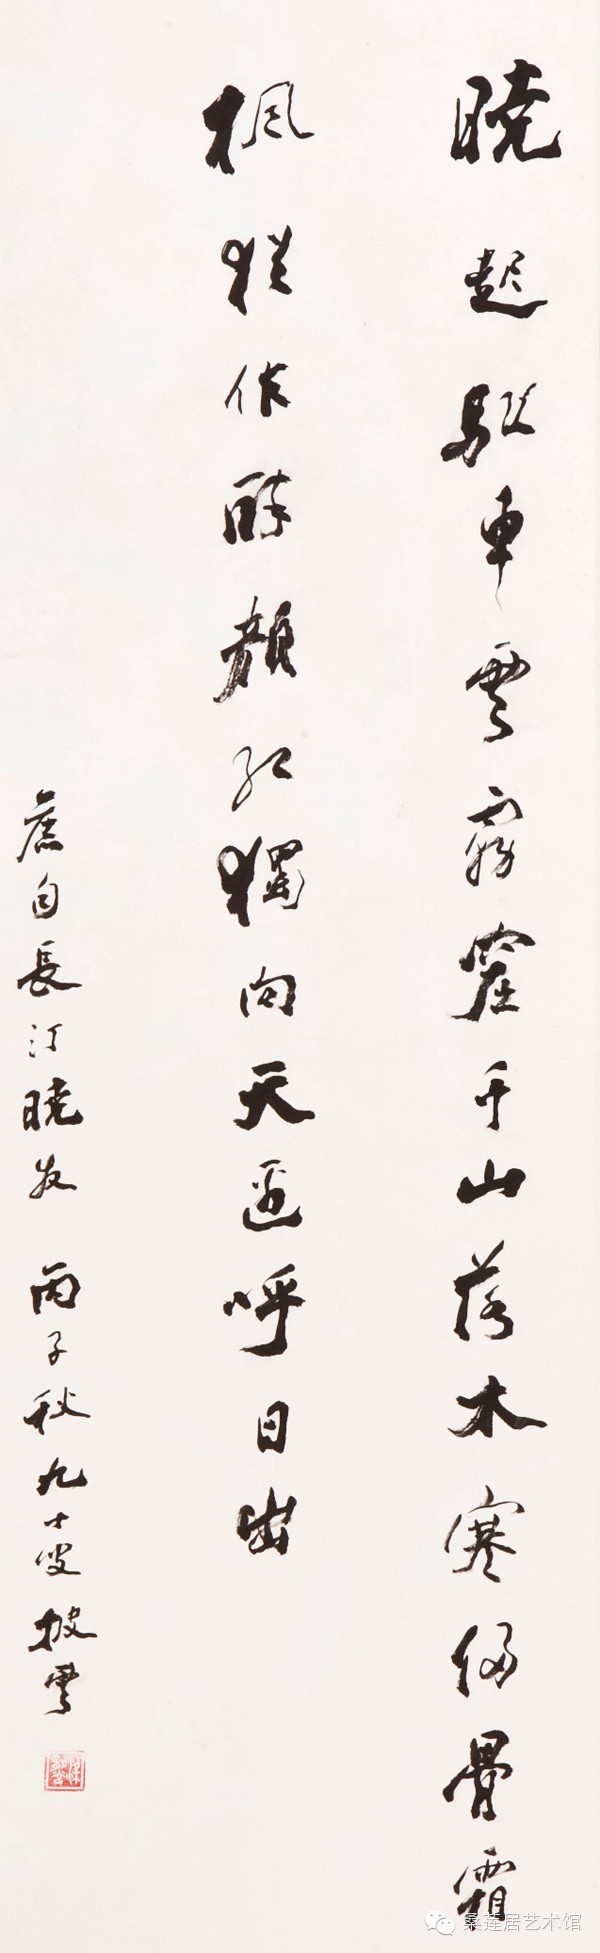 晓起驱车云雾窟千山落木寒侵骨霜
枫犹作醉颜红独向天边呼日出
旧自長汀晓发 丙子秋九十叟披雲
桑莲居艺术馆